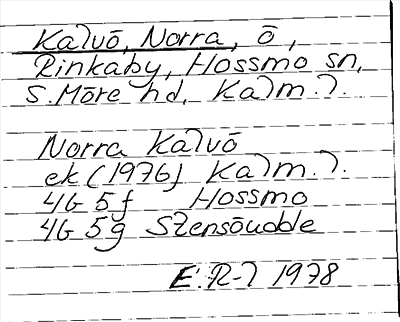 Kalvö, Norra, ö,
Rinkaby, Hossmo sn,
S. Möre hd, Kalm. l.
Norra Kalvö
ek (1976) Kalm. l.
4G 5f Hossmo
4G 5g Stensöudde
E. R-l 1978